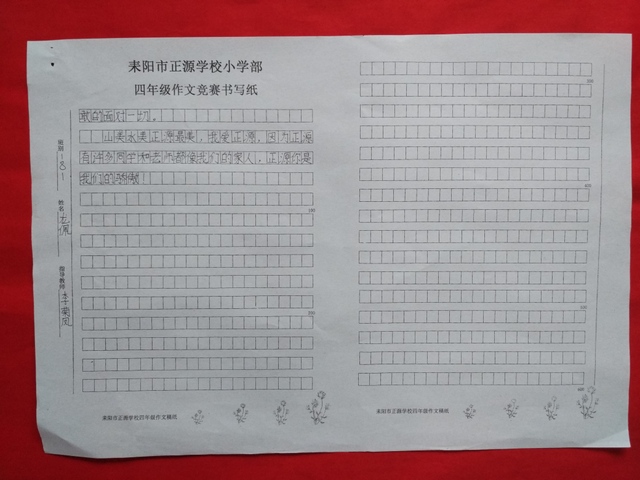 耒阳市正源学校小学部
四年级作文竞赛书写纸
敢的面对一切。
山美水美正源最美，我爱正源，因为正源
有许多同学和老师都像我们的家人，正源你是
我们的骄傲！
班别 181
姓名 尤佩
指导教师 李菊凤
100
200
300
400
500
600
耒阳市正源学校四年级作文稿纸
耒阳市正源学校四年级作文稿纸